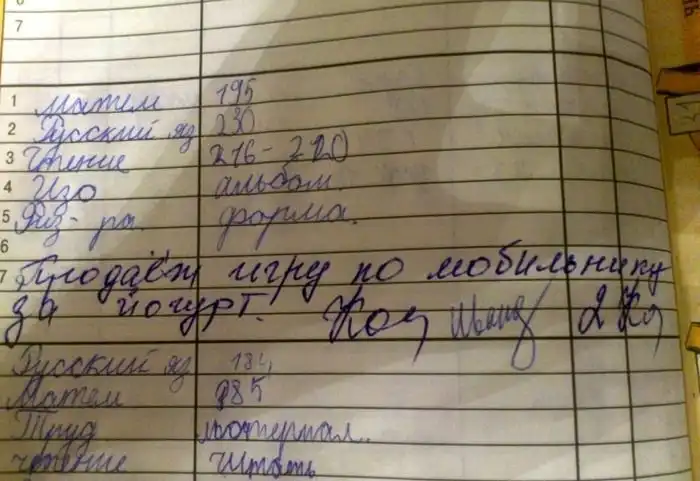 7
1 матем 195
2 Русский яз 230
3 Чтение 216-220
4 Изо альбом.
5 Физ-ра. форма.
6
7 Продаёж игру по мобильнику
за йогурт.
Русский яз 184
Матем 185
Труд материал..
чтение Читать